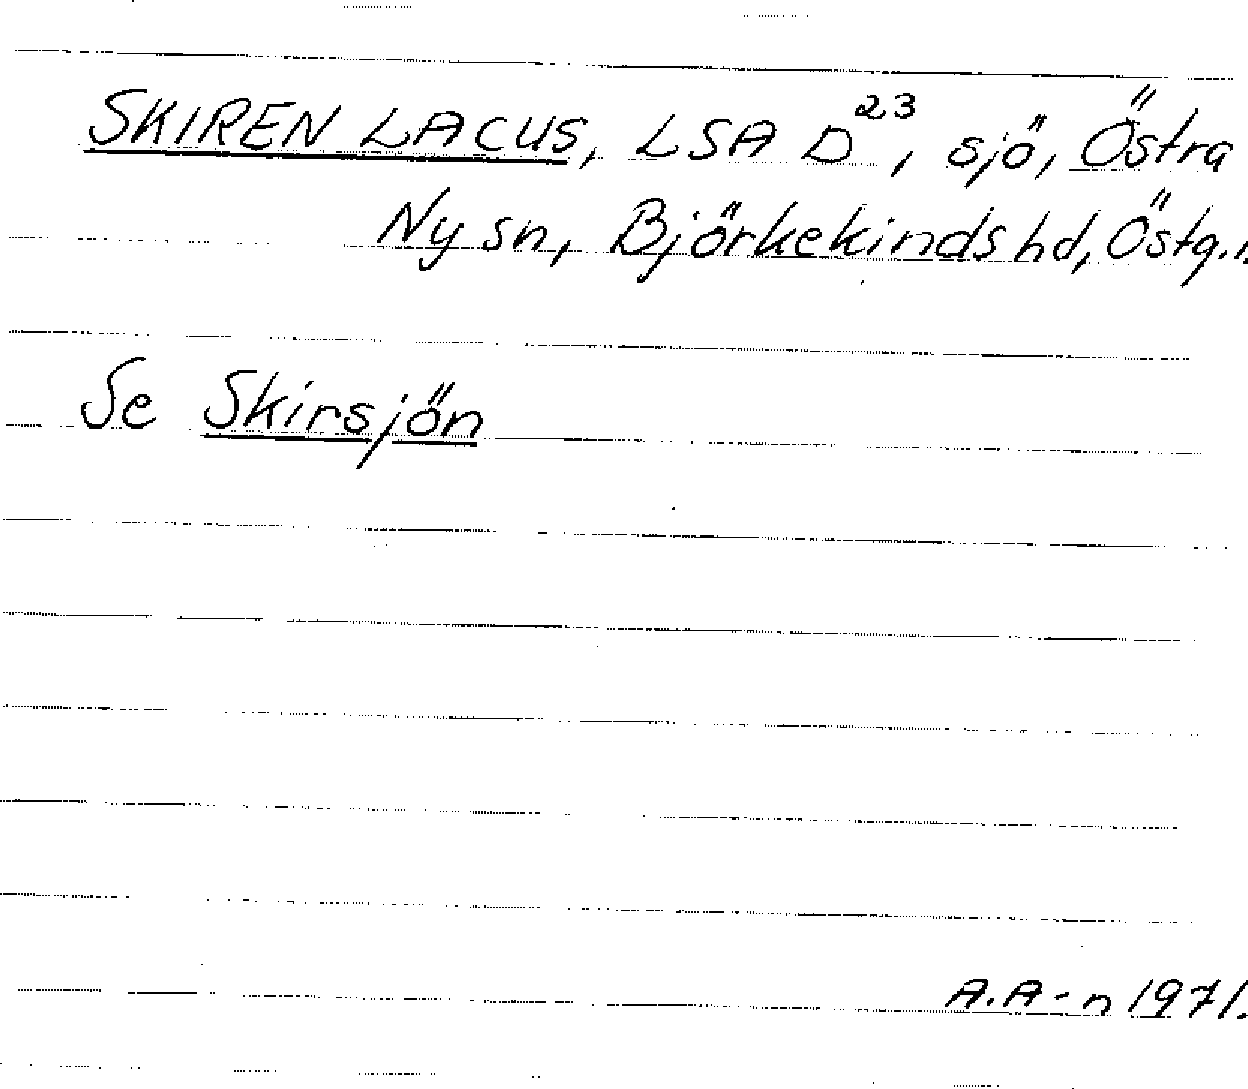 SKIREN LACUS, LSA D²³, sjö, Östra
Ny sn, Björkekinds hd, Östg.
Se Skirsjön
A.A-n 1971.